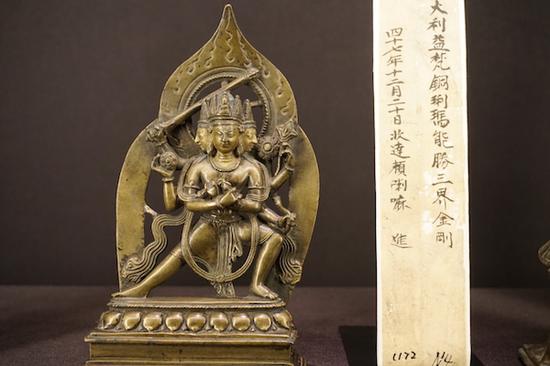 大利益梵銅琍瑪能勝三界金剛
四十七年十二月二十日收達頼喇嘛 進
1172